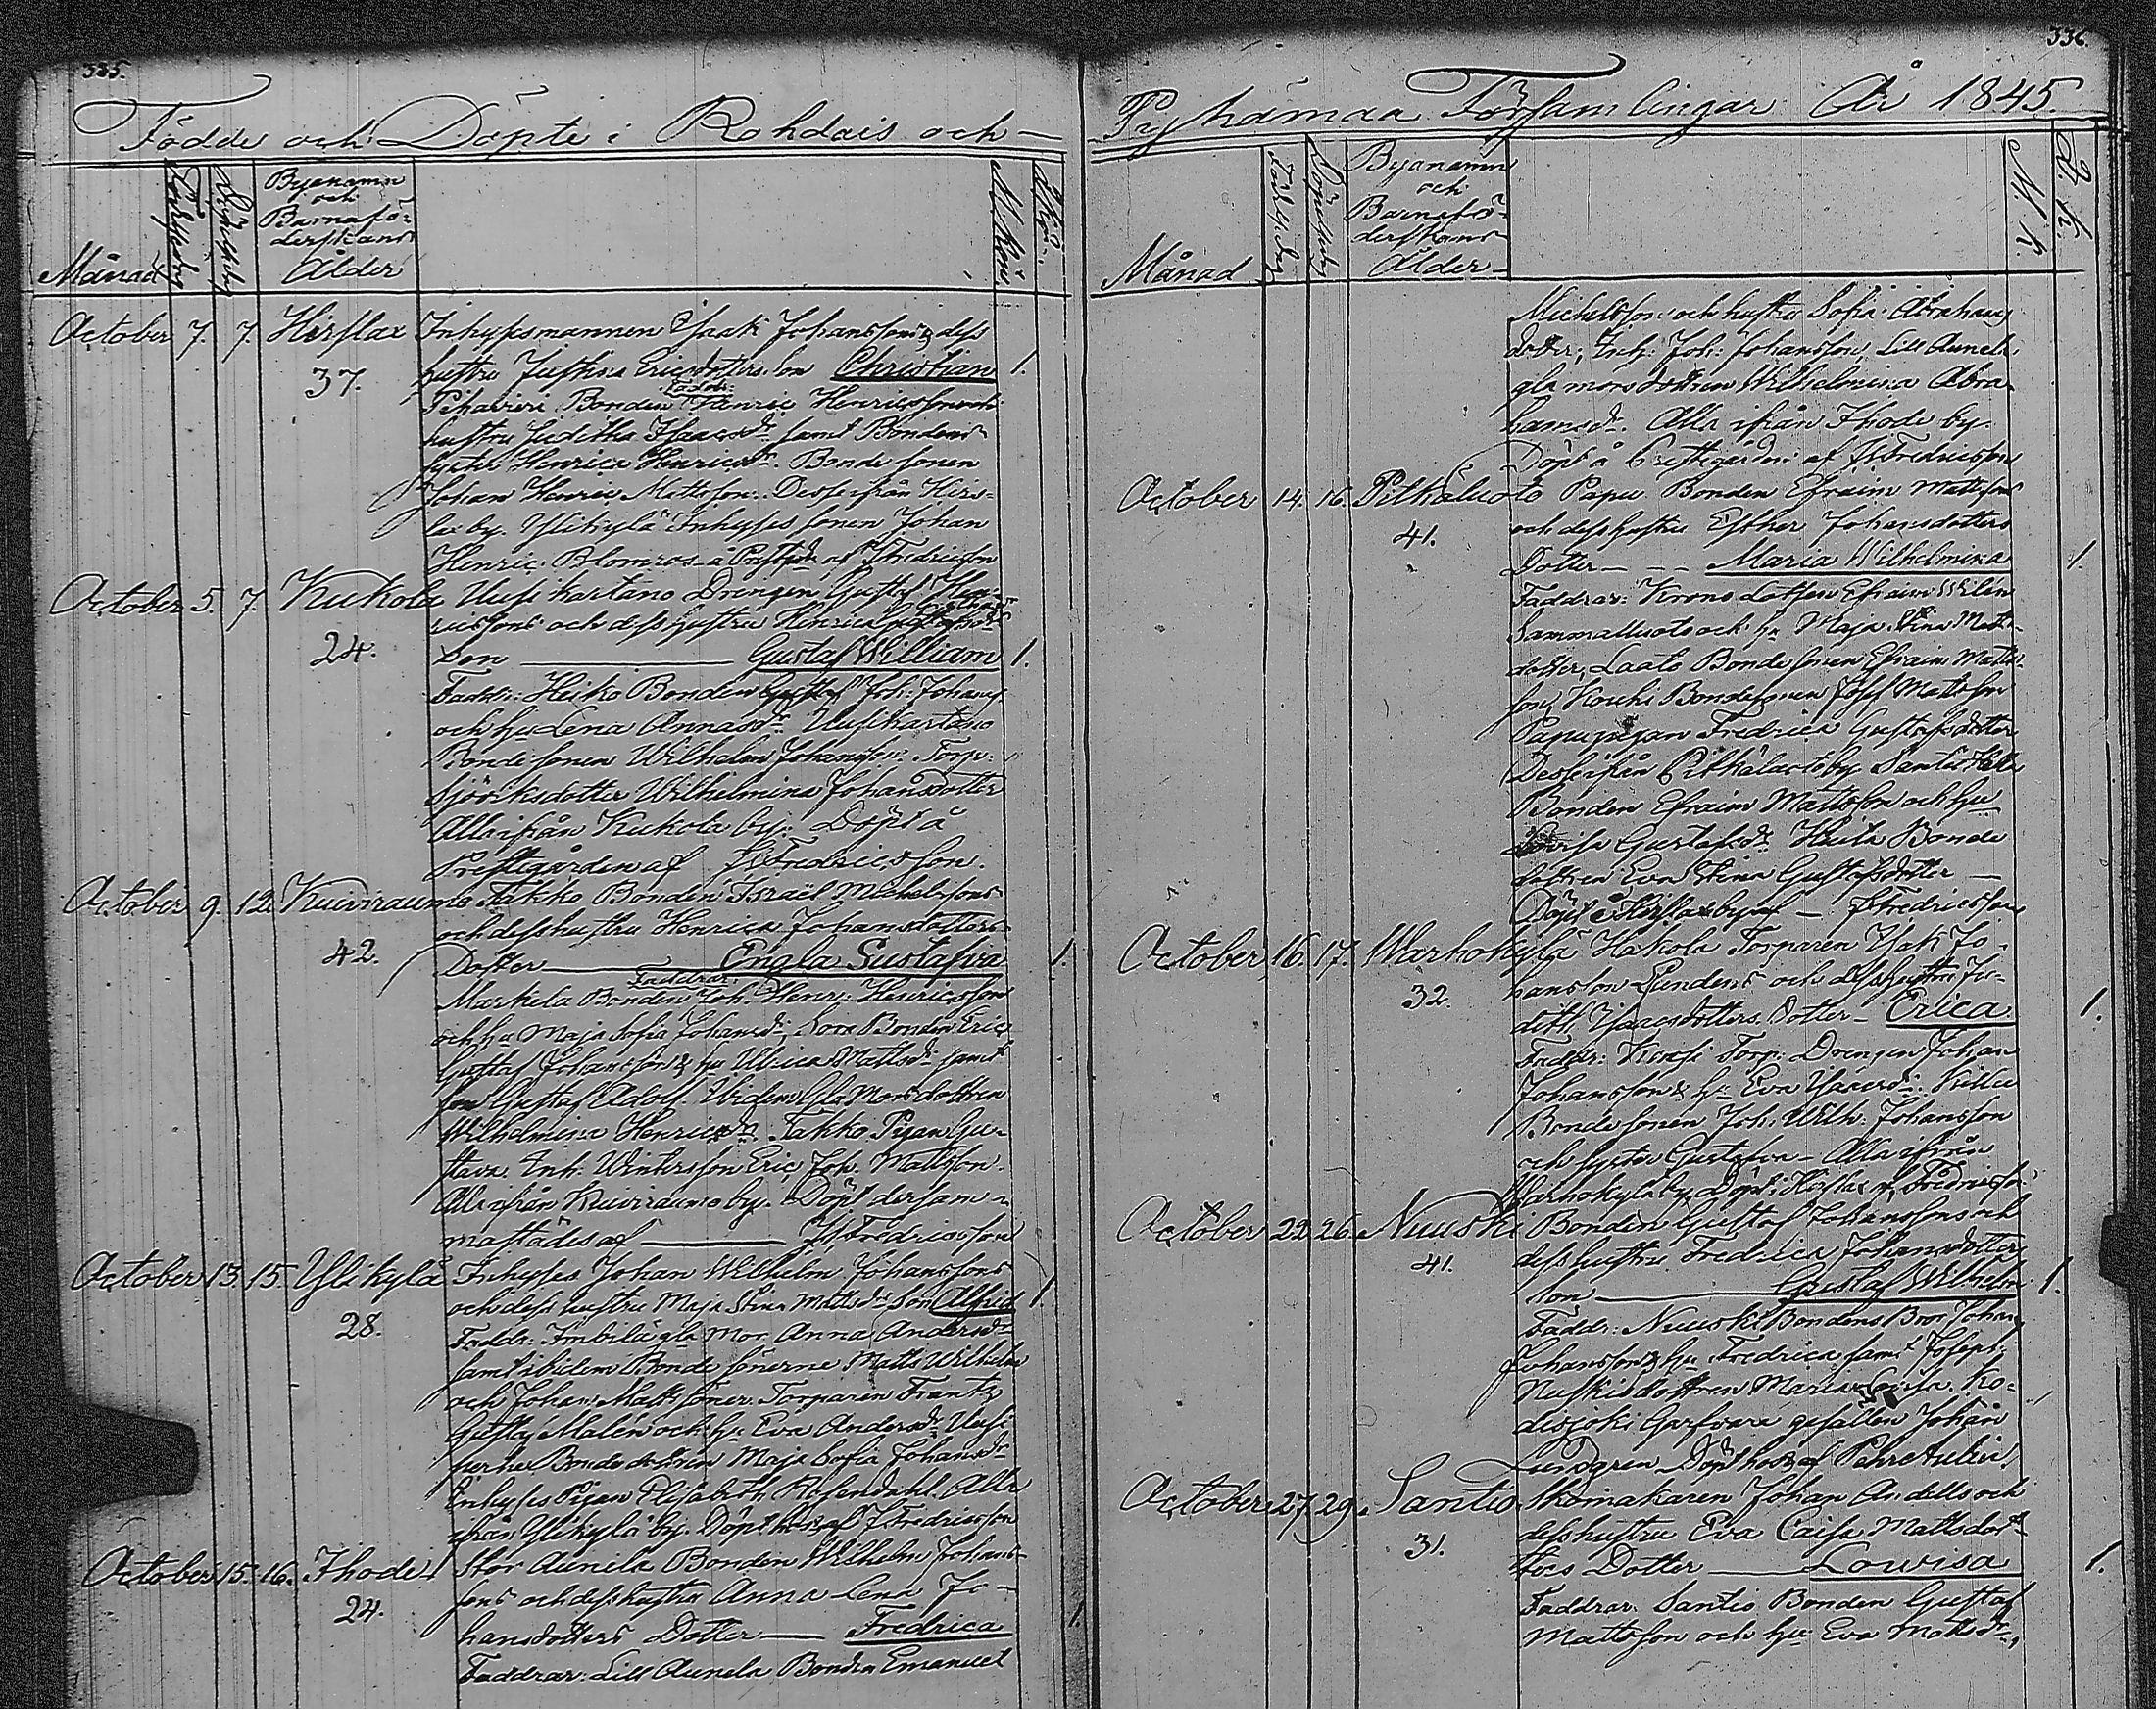 335.
Födde och Döpte i Rohdais och
Månad
Födelsedag
Döpelsedag
Byanamn
och
Barnafö-
derskans
Ålder
M. Kön
Q. Kön
October 7. 7. Hirslax Inhysesmannen Isaak Johanssons & dess
37. hustru Justina Ericsdotters Son Christian 1.
Faddr:
Pihaviri Bonden Henric Henricsson och
hustru Juditha Isaacsdr samt Bondens
syster Henrica Henricsdr. Bonde sonen
Johan Henric Mattsson. Desse ifrån Hirs-
lax by. Ylikylä Inhyses sonen Johan
Henric Blomros å Prestg. af Fredricsson
October 5. 7. Kukola Uusikartano Drengen Gustaf Hen-
ricssons och dess hustru Henrica
24. Son Gustaf William 1.
Faddr: Heiko Bonden Gustaf Joh: Johanss.
och hu Lena Annasdr Uusikartano
Bondesonen Wilhelm Johansson. Torp:
Sjöörksdotter Wilhelmina Johansdotter
Alla ifrån Kukola by. Döpt å
Prestgården af Fredricsson.
October 9. 12. Kuiviraumo Takko Bonden Israël Michelssons
och dess hustru Henrica Johansdotters
42. Dotter Engla Gustafva 1.
Faddrar:
Markela Bonden Joh. Henr: Henricsson
och hu Maja Sofia Johansdr, Sora Bonden Eric
Gustaf Johansson & hu Ulrica Mattsdr samt
son Gustaf Adolf. Ibidem Gla Mors dottren
Wilhelmina Henricsdr. Takko Pigan Gu-
stava. Inh: Wintersson Eric Joh. Mattsson.
Alla ifrån Kuiviraumo by. Döpt dersam-
mastädes af Fredricsson
October 13. 15. Ylikylä Inhyses Johan Wilhelm Johanssons
och dess hustru Maja Stina Mattsdrs Son Alfrid 1.
28. Faddr: Imbilä gla Mor Anna Andersdr
samt ibidem Bonde sönerne Matts Wilhelm
och Johan Mattssöner. Torparen Frantz
Gustaf Malén och hu Eva Andersdr Uusi
perhe Bondedottren Maja Sofia Johansdr
Inhyses Pigan Elisabeth Rosendahl. Alla
ifrån Ylikylä by. Döpt af Fredricsson
October 15. 16. Ihode Stor Aunela Bonden Wilhelm Johans-
24. sons och dess hustru Anna Lena Jo-
hansdotters Dotter Fredrica 1.
Faddrar: Lill Aunela Bonden Emanuel
336.
Pyhämaa Församlingar År 1845.
Månad
Födelsedag
Döpelsedag
Byanamn
och
Barnafö-
derskans
Ålder
M. K.
Q. K.
Michelsson och hustru Sofia Abrahams
dotter, Inh: Joh: Johansson, Lill Aunela
gla mors dottren Wilhelmina Abra-
hamsdr. Alla ifrån Ihode by.
Döpt å Prestegården af Fredricsson
October 14. 16. Pitkäluoto Papu Bonden Efraim Mattssons
41. och dess hustru Esther Johansdotters
Dotter Maria Wilhelmina 1.
Faddrar: Krono Lotsen Efraim Wilén
Sammalluoto och hu Maja Stina Matts-
dotter, Laato Bonde sonen Efraim Matts-
son, Kouhi Bondesonen Josef Mattsson
Papu pigan Fredrica Gustafsdotter
Desse ifrån Pitkäluoto by Santio
Bonden Efraim Mattsson och hu
Lovisa Gustafsdr Bonde
dottren Eva Stina Gustafsdotter
Döpt i Hirslax by af Fredricsson
October 16. 17. Warhokylä Hakola Torparen Isak Jo-
32. hansson Lundens och dess hustru Ju-
dith Isaacsdotters Dotter Erica 1.
Faddr: Torp: Drengen Johan
Johansson & hu Eva Isaacsdr. Killu
Bondesonen Joh: Wilh: Johansson
och syster Gustafva. Alla ifrån
Warhokylä by. Döpt i Hirslax af Fredricsson
October 22. 26. Nuuski Bonden Gustaf Johanssons och
41. dess hustru Fredrica Johansdotters
Son Gustaf Wilhelm 1.
Faddr: Nuuski Bondens Bror Johan
Johansson & hu Fredrica samt Joseph
Nuskis dottren Maria Caisa. Ko-
disjoki Garfvare gesällen Johan
Lundgren Döpt hos af Pehr Aulin.
October 27. 29. Santio Skomakaren Johan Andells och
31. dess hustru Eva Caisa Mattsdot-
ters Dotter Lovisa 1.
Faddrar. Santio Bonden Gustaf
Mattsson och hu Eva Mattsdr,